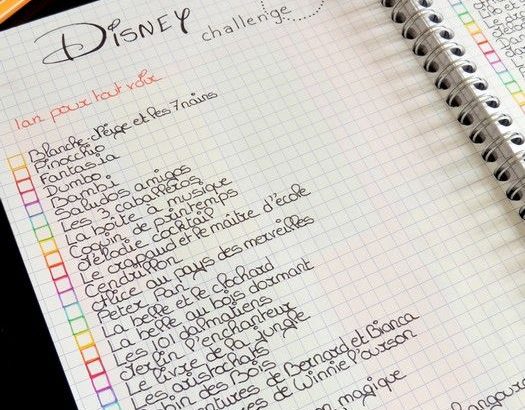 Disney challenge
1an pour tout voir
Blanche-Neige et les 7 nains
Pinocchio
Fantasia
Dumbo
Bambi
Saludos amigos
Les 3 caballeros
La boîte à musique
Coquin de printemps
Mélodie cocktail
Le crapaud et le maître d'école
Cendrillon
Alice au pays des merveilles
Peter Pan
La belle et le clochard
La belle au bois dormant
Les 101 dalmatiens
Merlin l'enchanteur
Le livre de la jungle
Les aristochats
bin des Bois
ntures de Bernard et Bianca
es de Winnie l'ourson
on magique